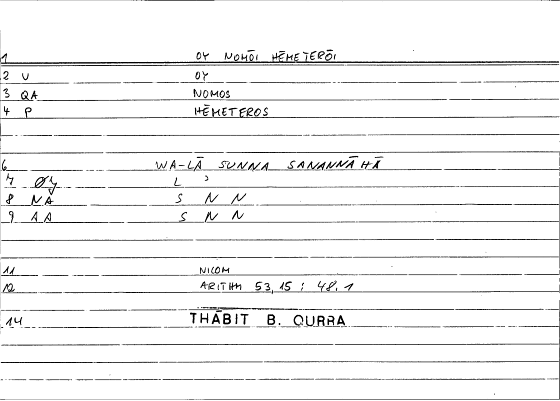 1 OY NOMŌI HĒMETERŌI
2 V OY
3 QA NOMOS
4 P HĒMETEROS
6 WA-LĀ SUNNA SANANNĀHĀ
7 ØY L ʾ
8 NA S N N
9 AA S N N
11 NICOM
12 ARITHM 53,15 : 48,1
14 THĀBIT B. QURRA